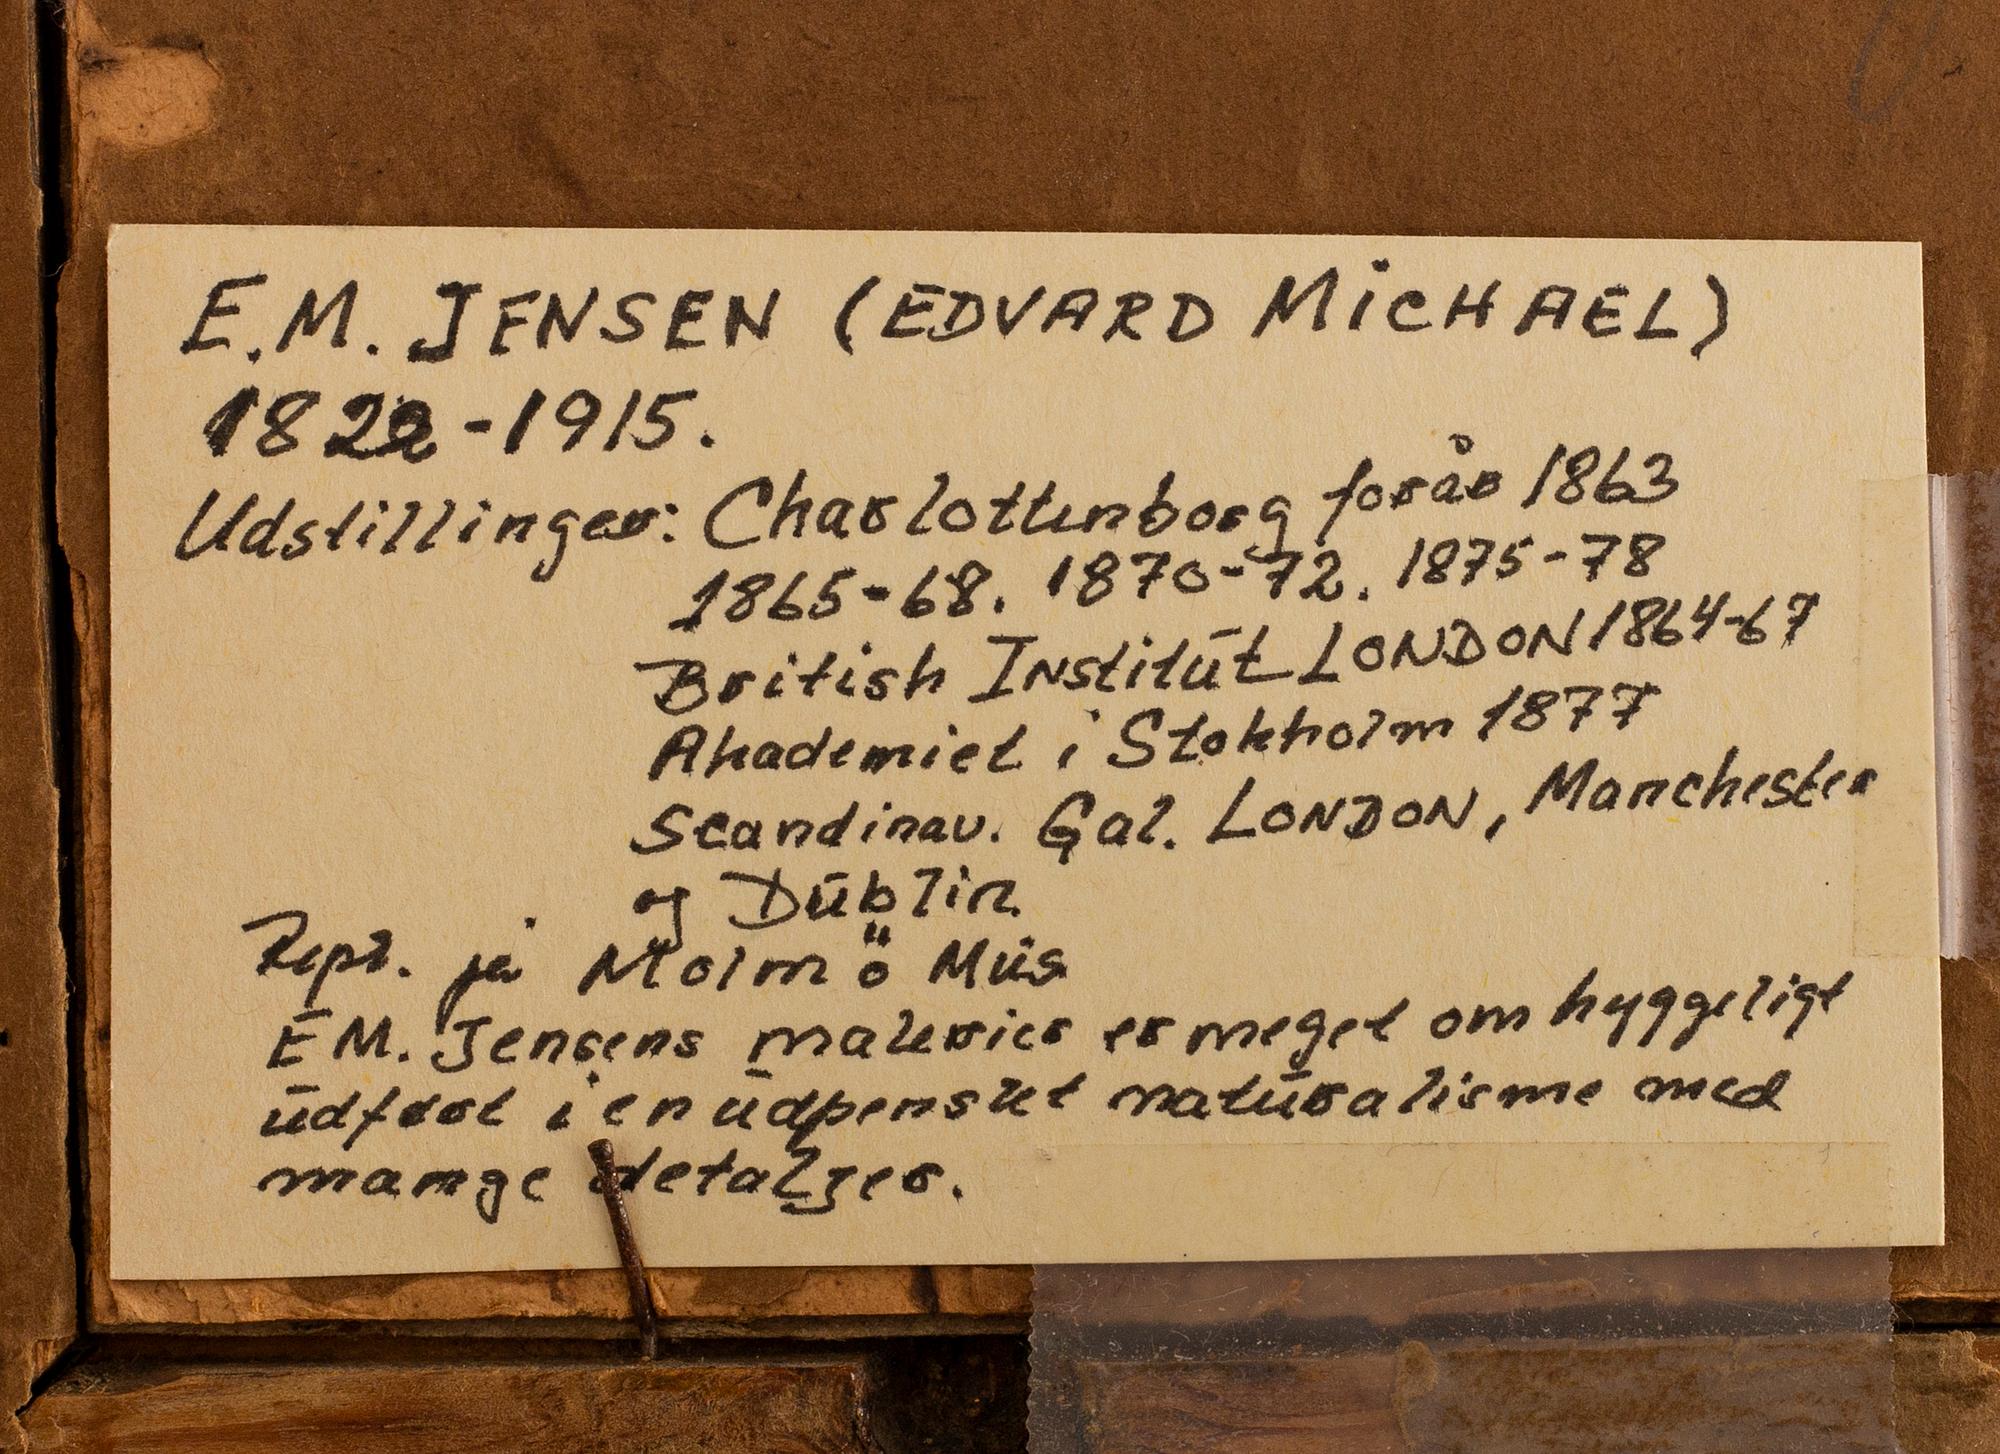 E.M. JENSEN (EDVARD MiCHAEL)
1822-1915.
Udstillinger: Charlottenborg forår 1863
1865-68. 1870-72. 1875-78
British Institūt LONDON 1864-67
Akademiet i Stokholm 1877
Scandinav. Gal. LONDON, Manchester
og Dūblin.
Repr. på Malmö Mūs
E M. Jensens malerier er meget om hyggeligt
ūdført i en ūdpenslet natūralisme med
mange detaljer.